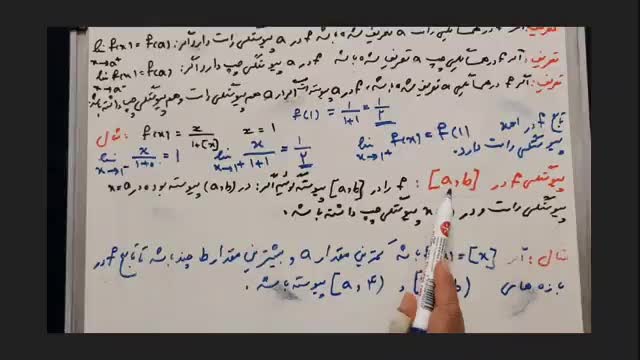 تعریف: اگر f در همسایگی راست a تعریف شده باشد، f در a پیوستگی راست دارد اگر: lim f(x) = f(a)
x→a⁺
تعریف: اگر f در همسایگی چپ a تعریف شده باشد، f در a پیوستگی چپ دارد اگر: lim f(x) = f(a)
x→a⁻
تعریف: اگر f در همسایگی a تعریف شده باشد، f در a پیوسته است اگر در a هم پیوستگی راست و هم پیوستگی چپ داشته باشد
f(1) = 1/(1+1) = 1/2
مثال: f(x) = x/(1+[x]) x = 1
lim f(x) = f(1)
x→1⁺
تابع f در x=1
پیوستگی راست دارد.
lim x/(1+0) = 1
x→1⁻
lim x/(1+1) = 1/2
x→1⁺
پیوستگی f در [a,b] : f را در [a,b] پیوسته گوئیم اگر: در (a,b) پیوسته بوده در x=a
پیوستگی راست و در x پیوستگی چپ داشته باشد.
مثال: اگر = [x] باشد کمترین مقدار a و بیشترین مقدار b چند باشد تا تابع f در
بازه های b) و [a,4) پیوسته باشد.